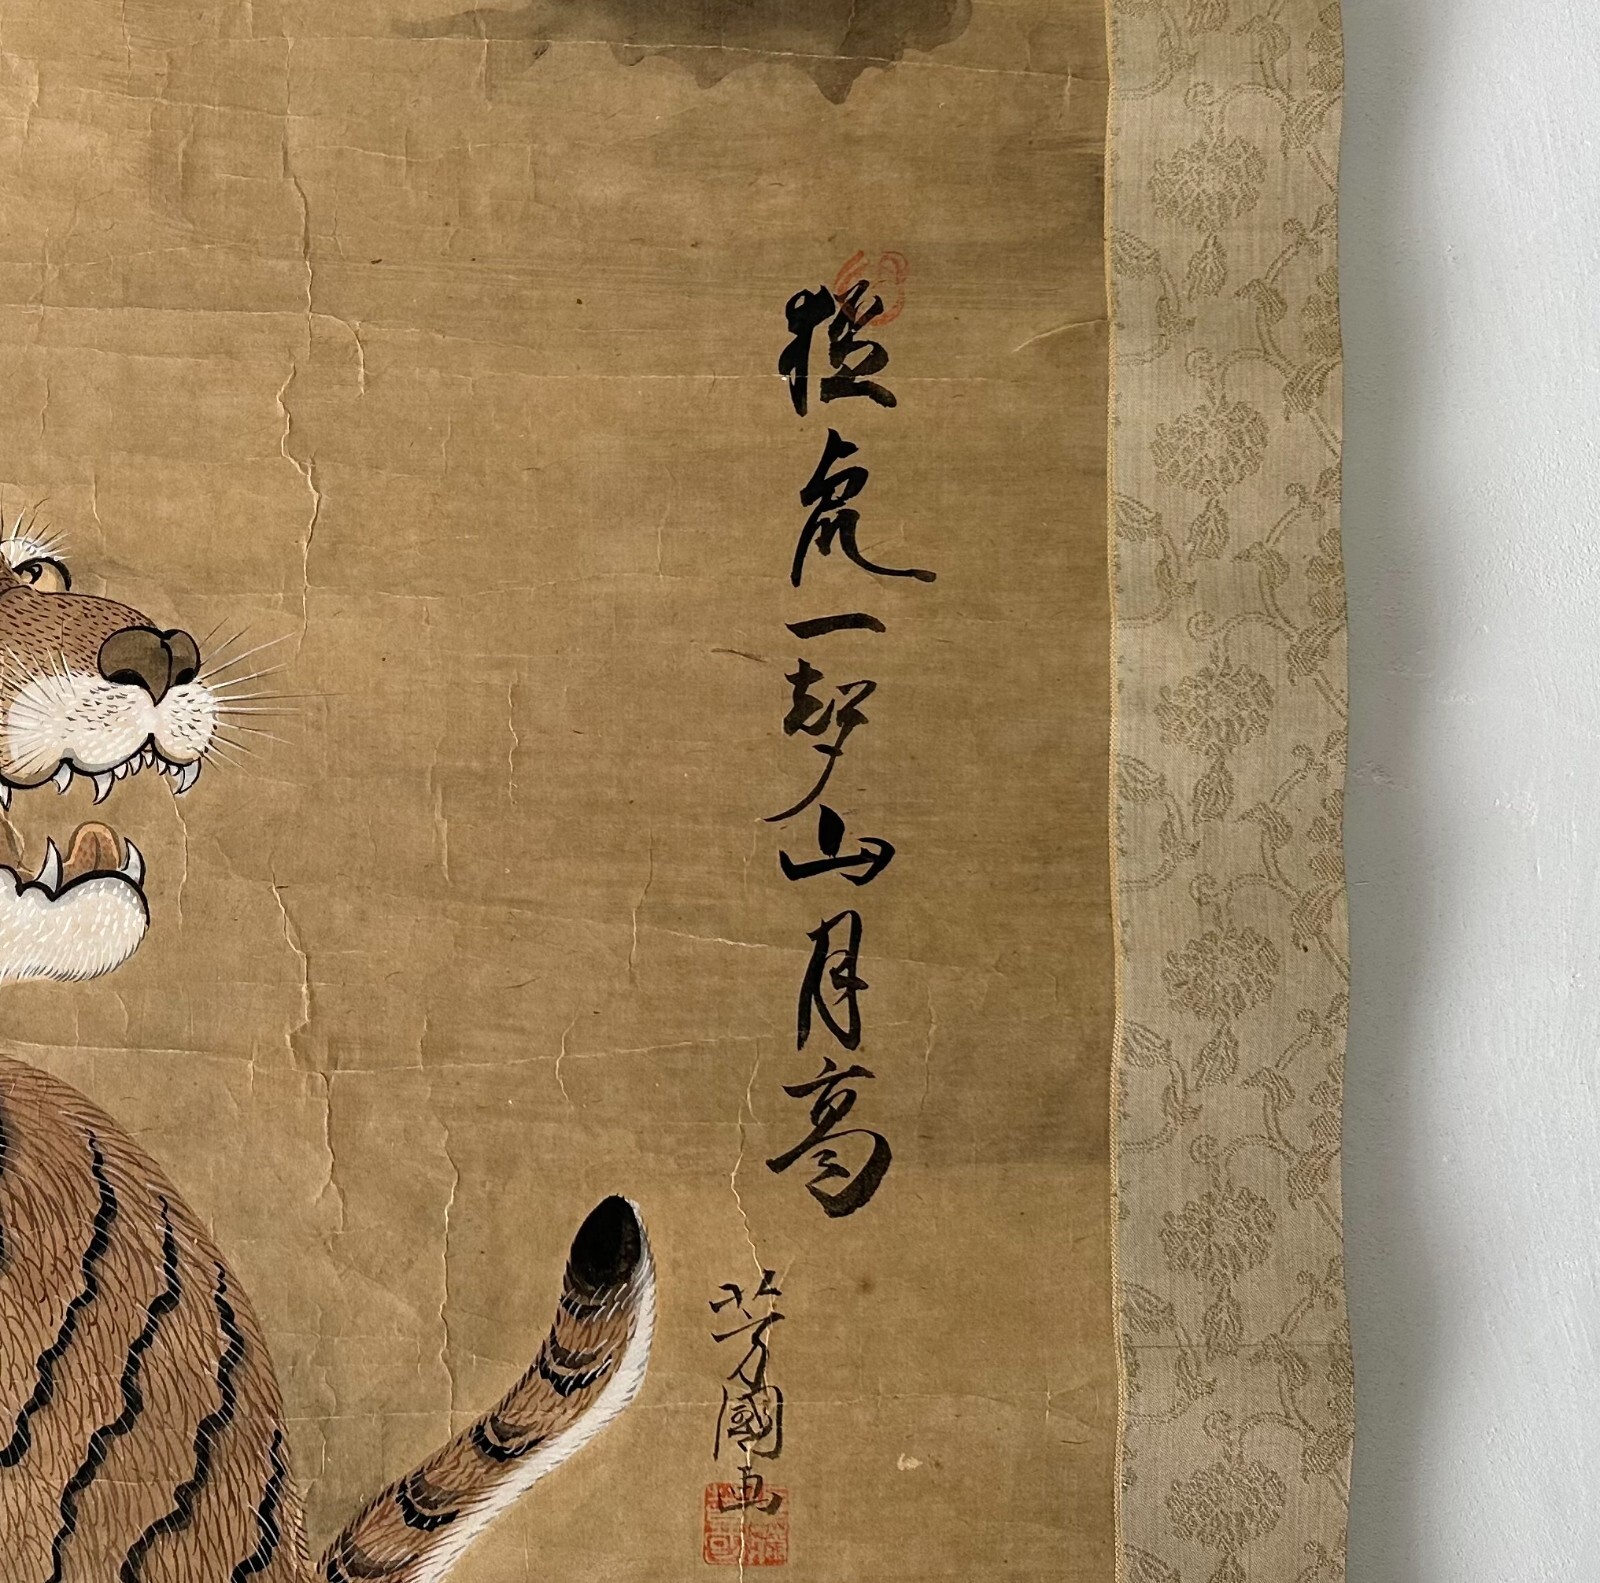 猛虎一聲山月高
芳國画